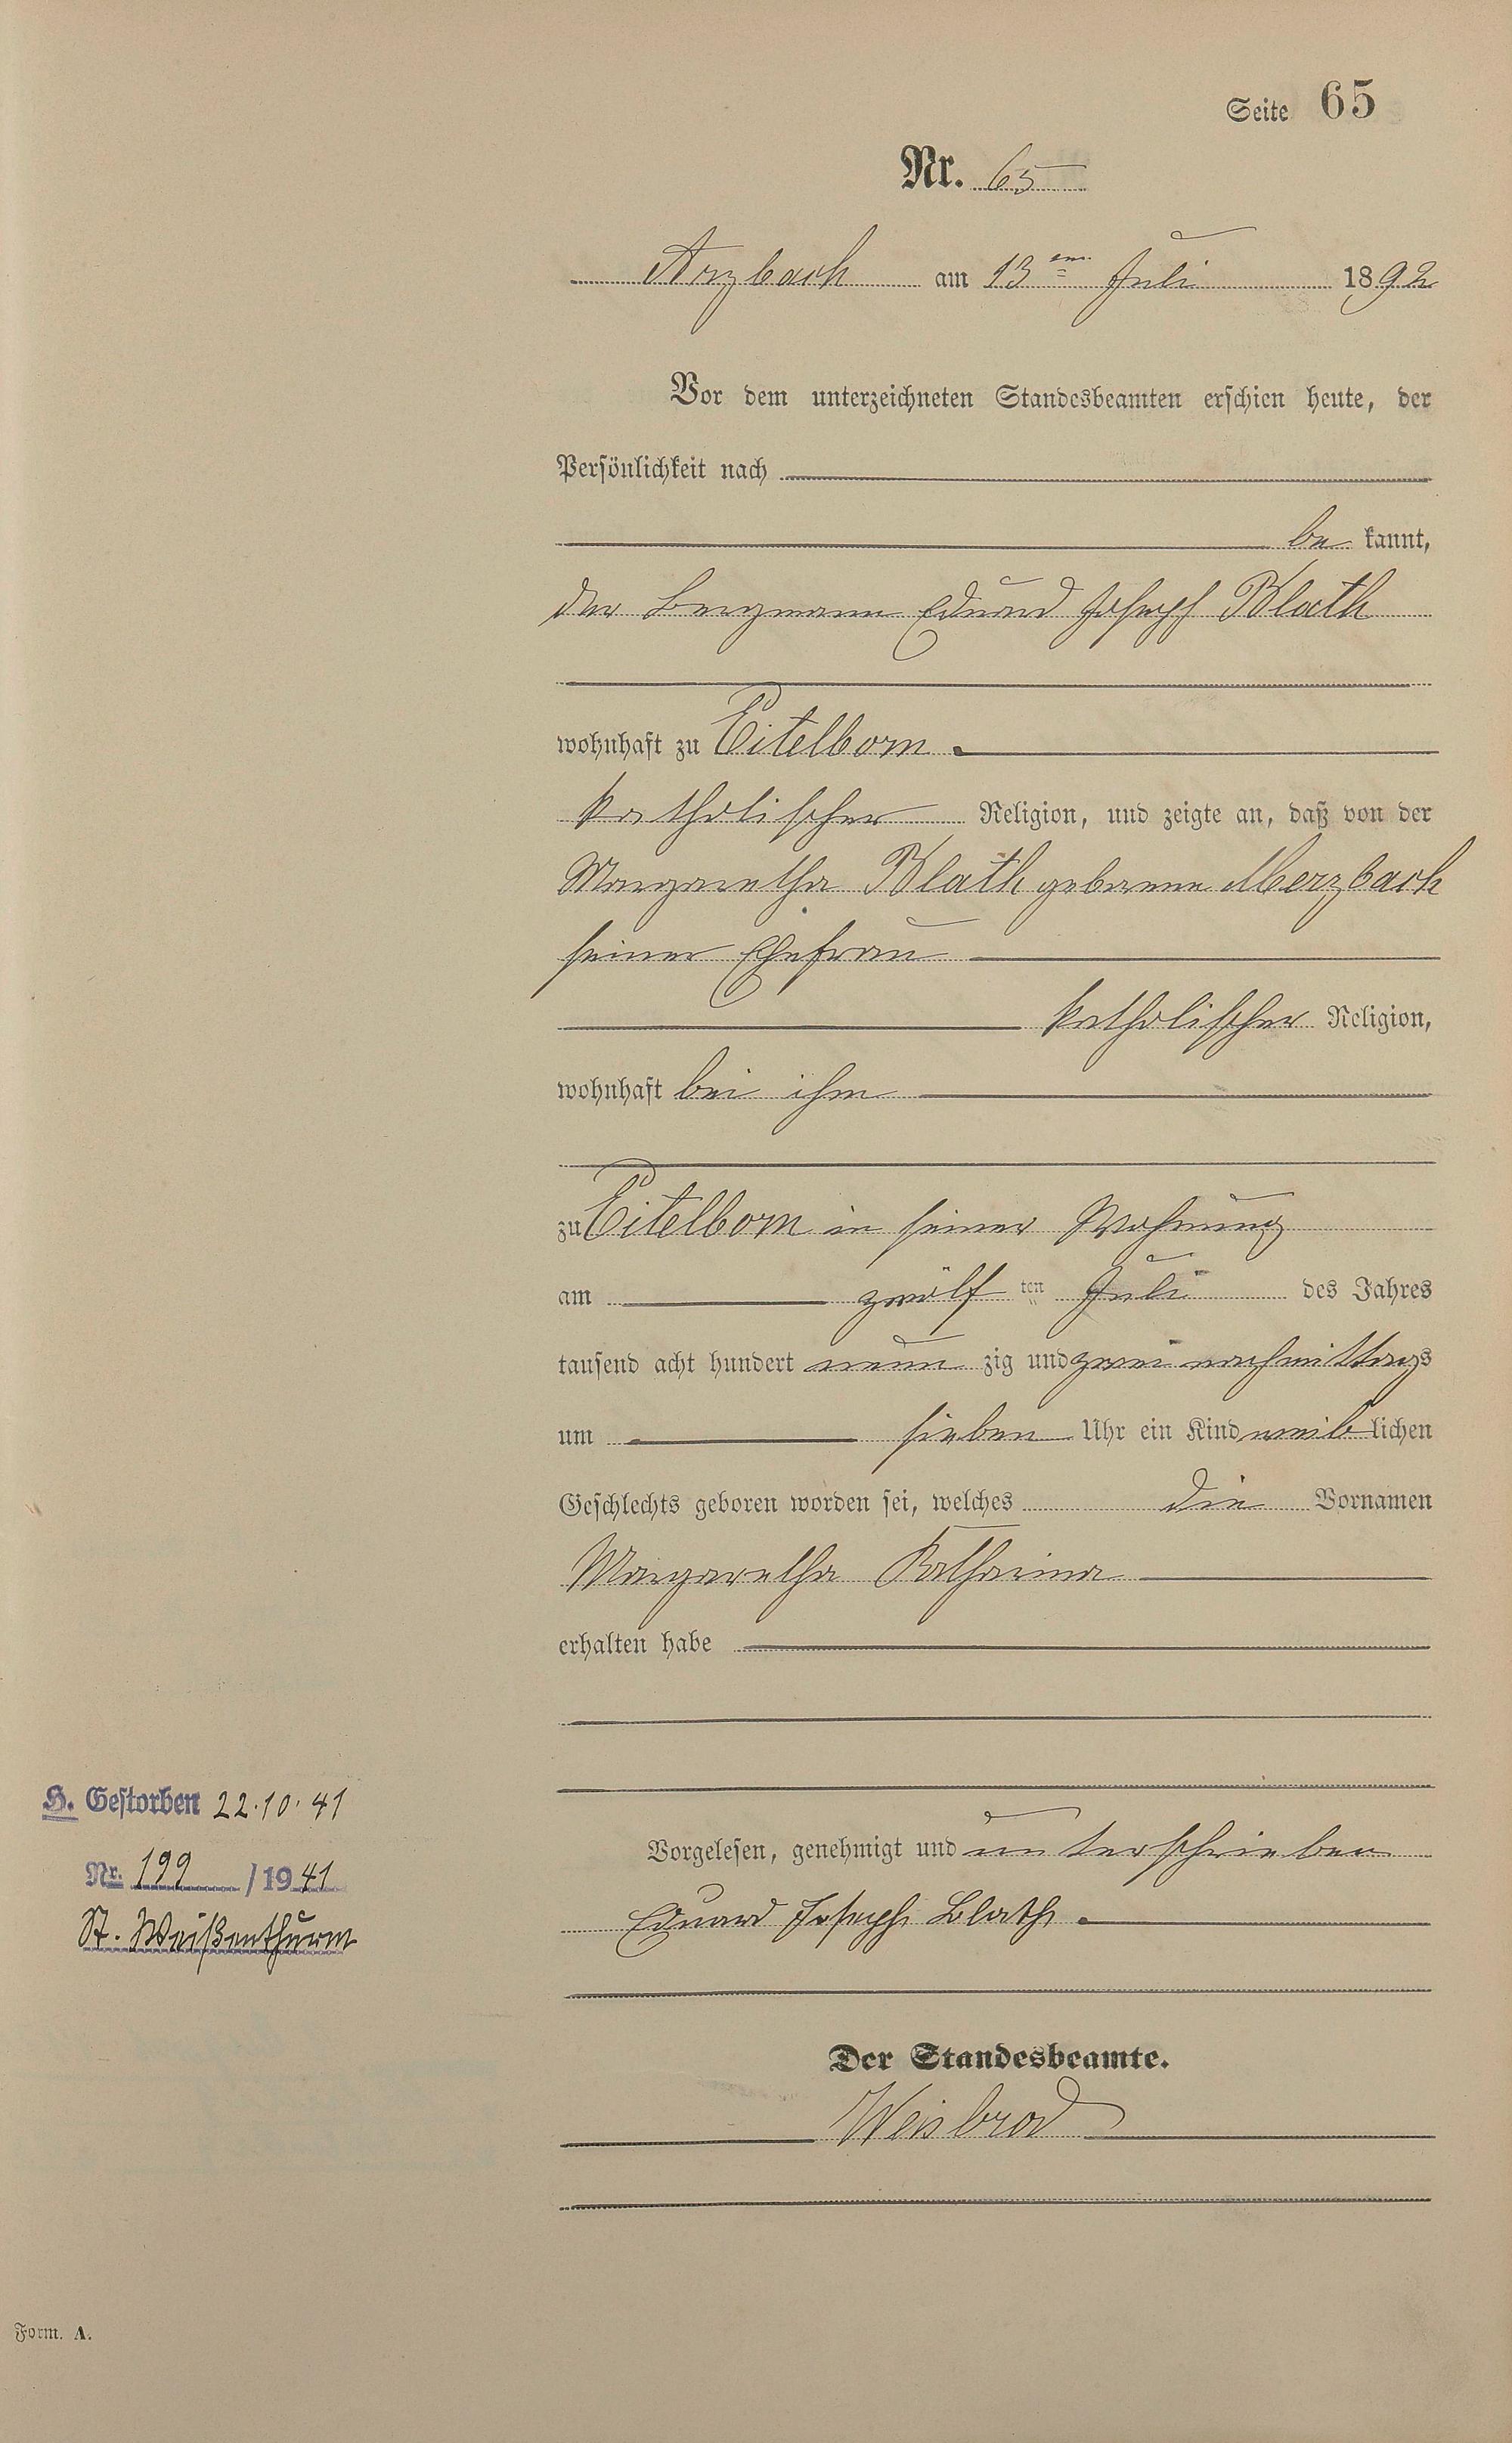 Seite 65
Nr. 65
Arzbach am 13ten Juli 1892
Vor dem unterzeichneten Standesbeamten erschien heute, der
Persönlichkeit nach
be kannt,
der Bergmann Eduard Joseph Blath
wohnhaft zu Eitelborn
katholischer Religion, und zeigte an, daß von der
Margaretha Blath geborene Merzbach
seiner Ehefrau
katholischer Religion,
wohnhaft bei ihm
zu Eitelborn in seiner Wohnung
am zwölf ten Juli des Jahres
tausend acht hundert neun zig und zwei nachmittags
um sieben Uhr ein Kind weib lichen
Geschlechts geboren worden sei, welches die Vornamen
Margaretha Katharina
erhalten habe
H. Gestorben 22.10.41
Nr. 199 / 1941
St. Weißenthurm
Vorgelesen, genehmigt und unterschrieben
Eduard Joseph Blath
Der Standesbeamte.
Weisbrod
Form. A.